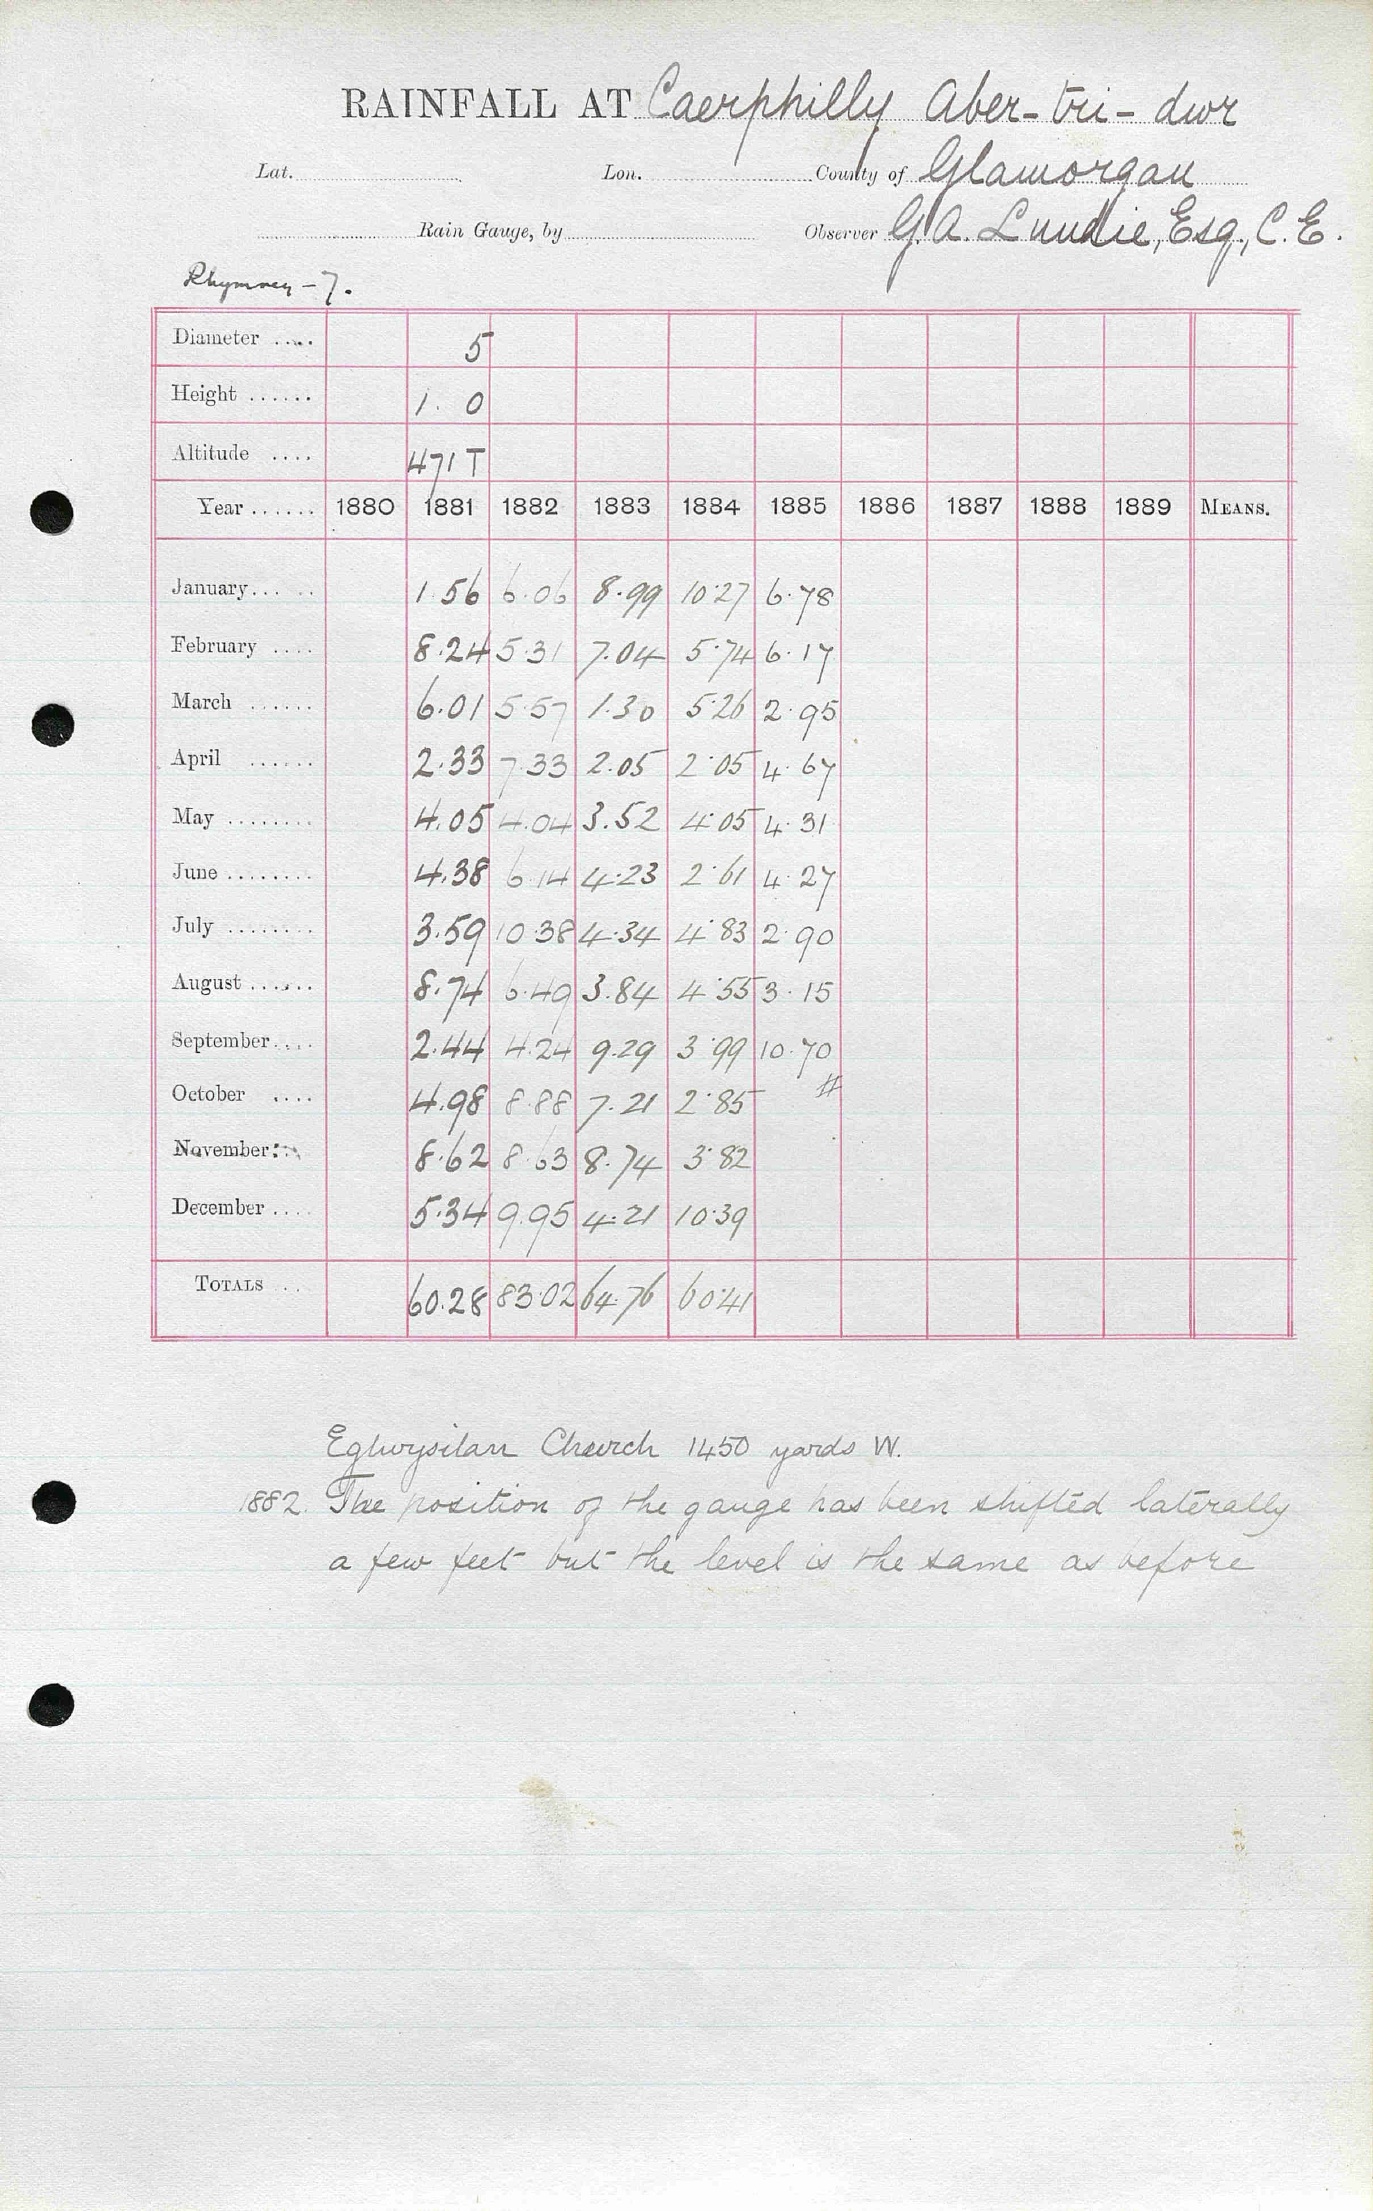 RAINFALL AT Caerphilly Aber-tri-dwr
Lat. Lon. County of Glamorgan
Rain Gauge, by Observer G. A. Lundie, Esq., C. E.
Rhymney - 7.
Diameter .... 5
Height ...... 1. 0
Altitude .... 471 T
Year ...... 1880 1881 1882 1883 1884 1885 1886 1887 1888 1889 MEANS.
January..... 1.56 6.06 8.99 10.27 6.78
February .... 8.24 5.31 7.04 5.74 6.17
March ...... 6.01 5.57 1.30 5.26 2.95
April ...... 2.33 7.33 2.05 2.05 4.67
May ........ 4.05 4.04 3.52 4.05 4.31
June ........ 4.38 6.14 4.23 2.61 4.27
July ........ 3.59 10.38 4.34 4.83 2.90
August ...... 8.74 6.49 3.84 4.55 3.15
September.... 2.44 4.24 9.29 3.99 10.70
October .... 4.98 8.88 7.21 2.85 #
November.... 8.62 8.63 8.74 3.82
December .... 5.34 9.95 4.21 10.39
TOTALS .. 60.28 83.02 64.76 60.41
Eglwysilan Church 1450 yards W.
1882. The position of the gauge has been shifted laterally
a few feet but the level is the same as before